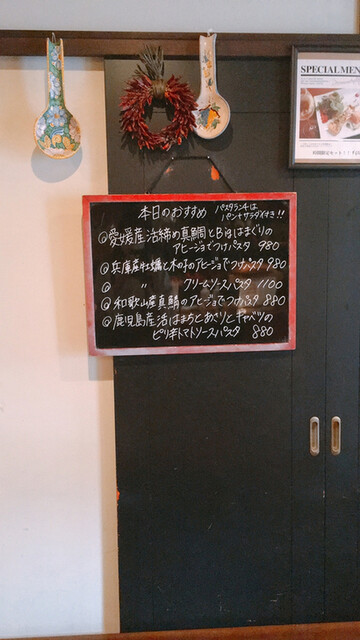 SPECIAL MEN
本日のおすすめ パスタランチは
パン+サラダ付き!!
◎愛媛産活締め真鯛とBigはまぐりの
アヒージョでつけパスタ 980
◎兵庫産牡蠣と木の子のアヒージョでつけパスタ 980
◎ 〃 クリームソースパスタ 1100
◎和歌山産真鯖のアヒージョでつけパスタ 880
◎鹿児島産活はまちとあさりとキャベツの
ピリ辛トマトソースパスタ 880